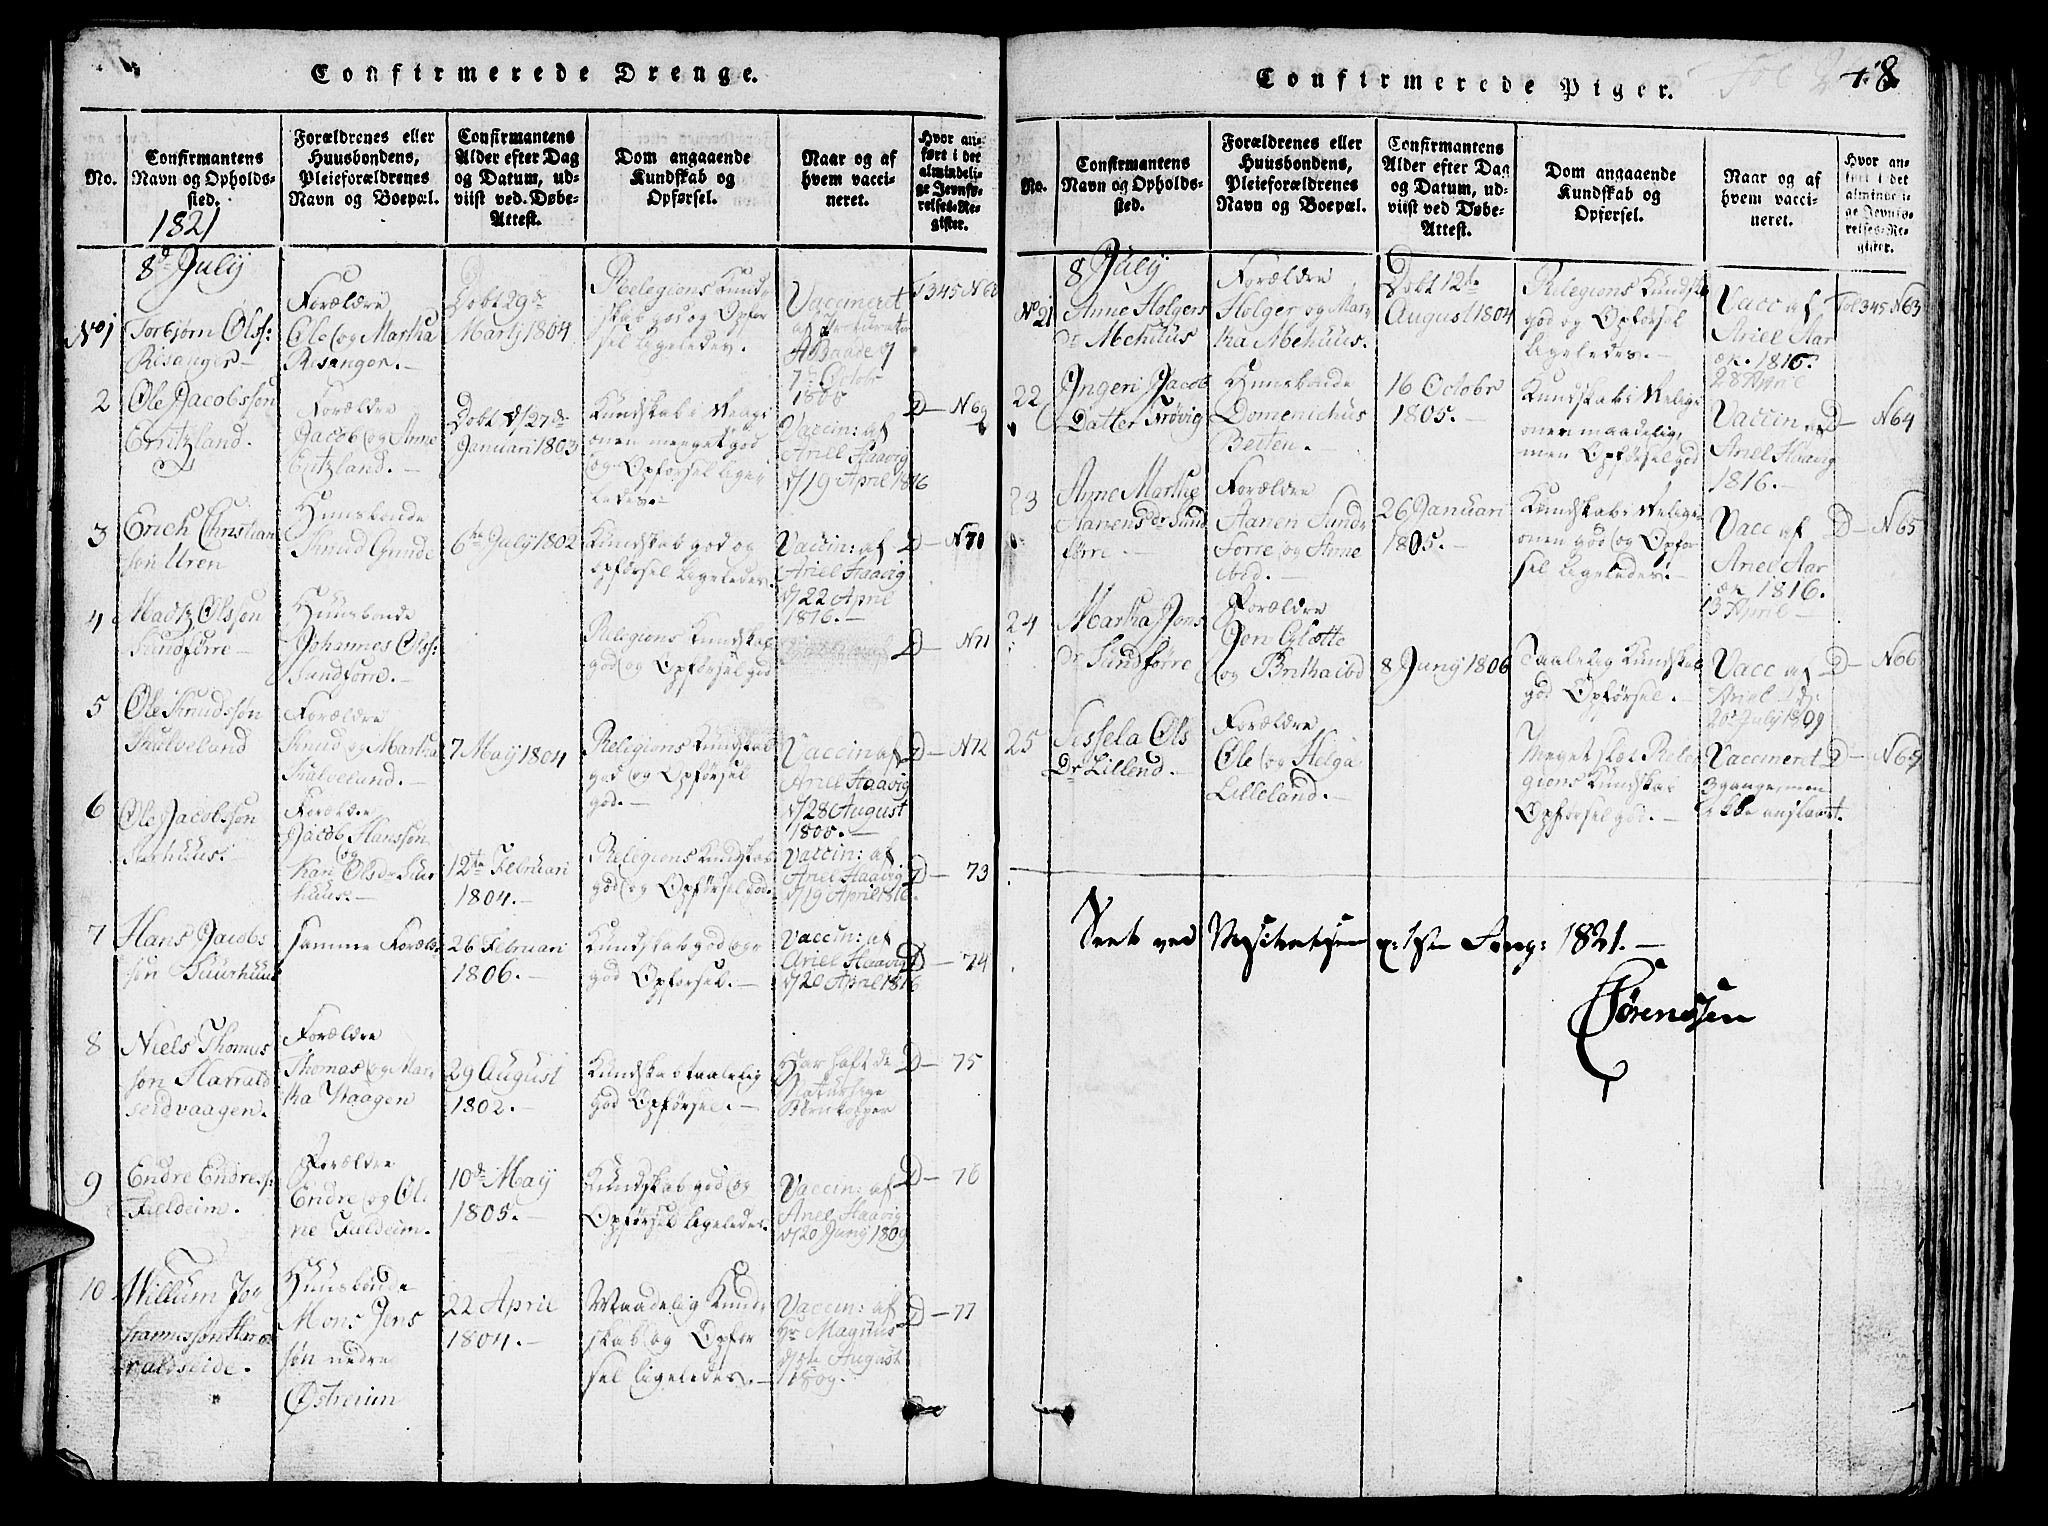 Confirmerede Drenge.
No.
Confirmantens
Navn og Opholds-
sted.
1821
Forældrenes eller
Huusbondens,
Pleieforældrenes
Navn og Boepæl.
Confirmantens
Alder efter Dag
og Datum, ud-
viist ved Døbe-
Attest.
Dom angaaende
Kundskab og
Opførsel.
Naar og af
hvem vacci-
neret.
Hvor an-
ført i det
almindeli-
ge Jevnfø-
relses-Re-
gister.
8de July
No 1
Torbjørn Ols:
Risanger
Forældre
Ole og Martha
Risanger.
Døbt 29de
Martj 1804
Religions Kund-
skab god og Opfør
sel ligeledes.
Vaccineret
7de Octobr
1800
2
Ole Jacobssøn
Critzland.
Forældre
Jacob og Anne
Critzland.
Døbt d/27de
Januari 1803
Kundskab i Religi
onen meeget god
og Opførsel lige
ledes.
Vaccin: af
Ariel Haavig
d/19 April 1816
D— N 69
3
Erich Christian
søn Uren
Huusbonde
Knud Gunde
6te July 1802
Kundskab god og
opførsel ligeledes.
Vaccin: af
Ariel Haavig
d/22 April
1816.
D— N 70
4
Madtz Olssøn
Sundførre
Huusbonde
Johannes Ols:
Sundførre.
Religions Kundskab
god og Opførsel god
D— N 71
5
Ole Knudssøn
Kulveland
Forældre
Knud og Martha
Kulveland.
7 May 1804
Religions Kundskab
god og Opførsel
god.
Vaccin af
Ariel Haavig
d/28 August
1800.
D— N 72
6
Ole Jacobssøn
Suurhuus.
Forældre
Jacob Hanssøn
og
Kari Olsdr Suur
huus.
12te Februari
1804.
Religions Kundskab
god og Opførsel god.
Vaccin: af
Ariel Haavig
d/19 April 1816.
D— 73
7
Hans Jacobs
søn Suurhuus
samme Forældre
26 Februari
1806.
Kundskab god og
god Opførsel.
Vaccin: af
Ariel Haavig
d/20 April 1816
D— 74
8
Niels Thomas
søn Harrald
seidvaagen.
Forældre
Thomas og Mar
tha Vaagen
29 August
1802.
Kundskab taalelig
god Opførsel.
Har haft de
Naturlige
Børnekopper
D— 75
9
Endre Endres:
Fieldeim.
Forældre
Endre og Ol
ne Fieldeim.
10de May
1805.
Kundskab god og
Opførsel ligeledes.
Vaccin: af
Ariel Haavig
d/20 Junij 1809
D— 76
10
Willum Jo
hannessøn Har
raldseide.
Huusbonde
Mons Jens
søn nedre
Østreim
22 April
1804.
Maadelig Kund-
skab og Opfør
sel ligeledes.
Vaccin: af
Hr Magnus
August
1809.
D— 77
Confirmerede Piger.
Fol 248
No.
Confirmantens
Navn og Opholds-
sted.
Forældrenes eller
Huusbondens,
Pleieforældrenes
Navn og Boepæl.
Confirmantens
Alder efter Dag
og Datum, ud-
viist ved Døbe-
Attest.
Dom angaaende
Kundskab og
Opførsel.
Naar og af
hvem vacci-
neret.
Hvor an-
ført i det
almindeli-
ge Jevnfø-
relses-Re-
gister.
8 July
No 21
Anne Holgers
Dr Mehuus
Forældre
Holger og Mar
tha Mehuus.
Døbt 12te
August 1804
Religions Kundskab
god og Opførsel
ligeledes.
Vacc af
Ariel Aar
1816.
28 April
Fol 345 N 63
22
Ingeri Jacob
Datter Frøvig
Huusbonde
Domenichus
Beiten.
16 Octobr
1805.
Kundskab i Religi
onen maadelig,
men Opførsel god
Vaccin af
Ariel Haavig
1816.
D— N 64
23
Anne Marthe
Aanensdr Sund
førre.
Forældre
Aanen Sund
førre og Anne
ibid.
26 Januari
1805.
Kundskab i Religi
onen god og Opfør
sel ligeledes.
Vacc af
Ariel Aar
1816.
13 April
D— N 65
24
Martha Jons
Dr Sundførre
Forældre
Jon Glette
og Britha ibd
8 Junij 1806
Taalelig Kundskab
god Opførsel.
Vacc af
26 July 1809
D— N 66
25
Sessela Ols
Dr Lillend.
Forældre
Ole og Helga
Lilleland.
Meget slet Reli
gions Kundskab
Opførsel god.
Vaccineret
3 gange men
ikke anslaaet.
D— N 67
Seet ved Visitatsen 1821.
Sørenssen